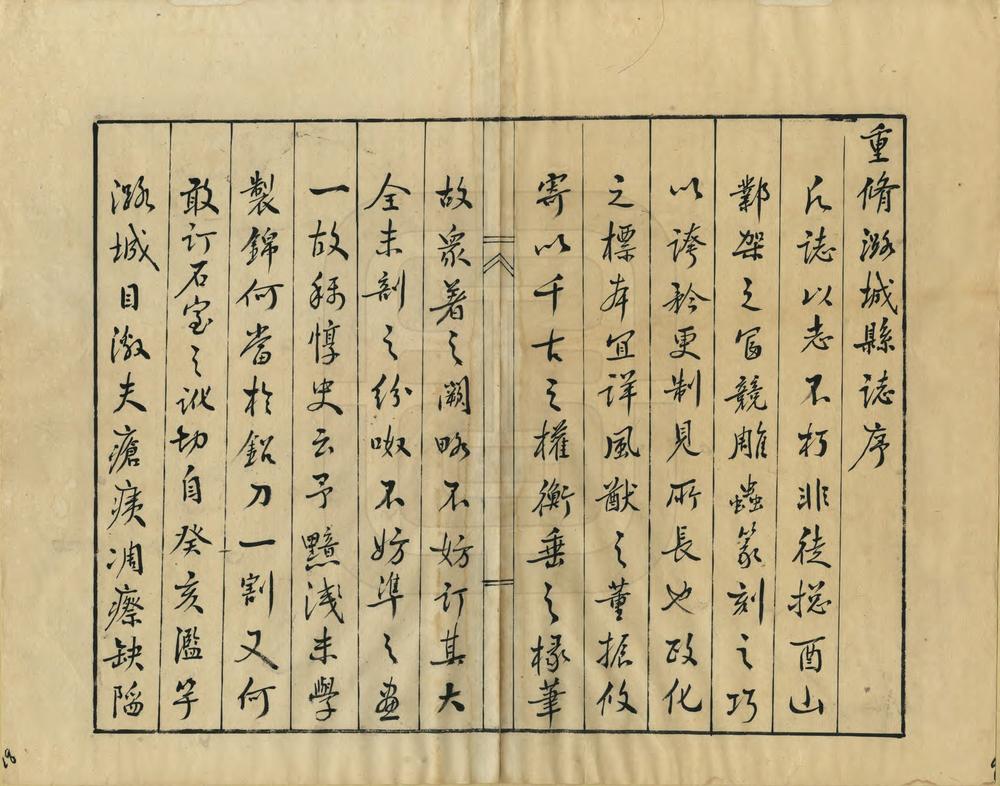 重脩潞城縣誌序
凡誌以志不朽非徒摠酉山
鄴架之富競雕蟲篆刻之巧
以誇矜更制見所長也政化
之標本宜詳風猷之董振攸
寄以千古之權衡垂之椽筆
故衆著之闕略不妨訂其大
全未剖之紛呶不妨準之畫
一故稱惇史云予黯淺未學
製錦何當於鉛刀一割又何
敢訂石室之訛切自癸亥濫竽
潞城目激夫瘡痍凋瘵缺陷